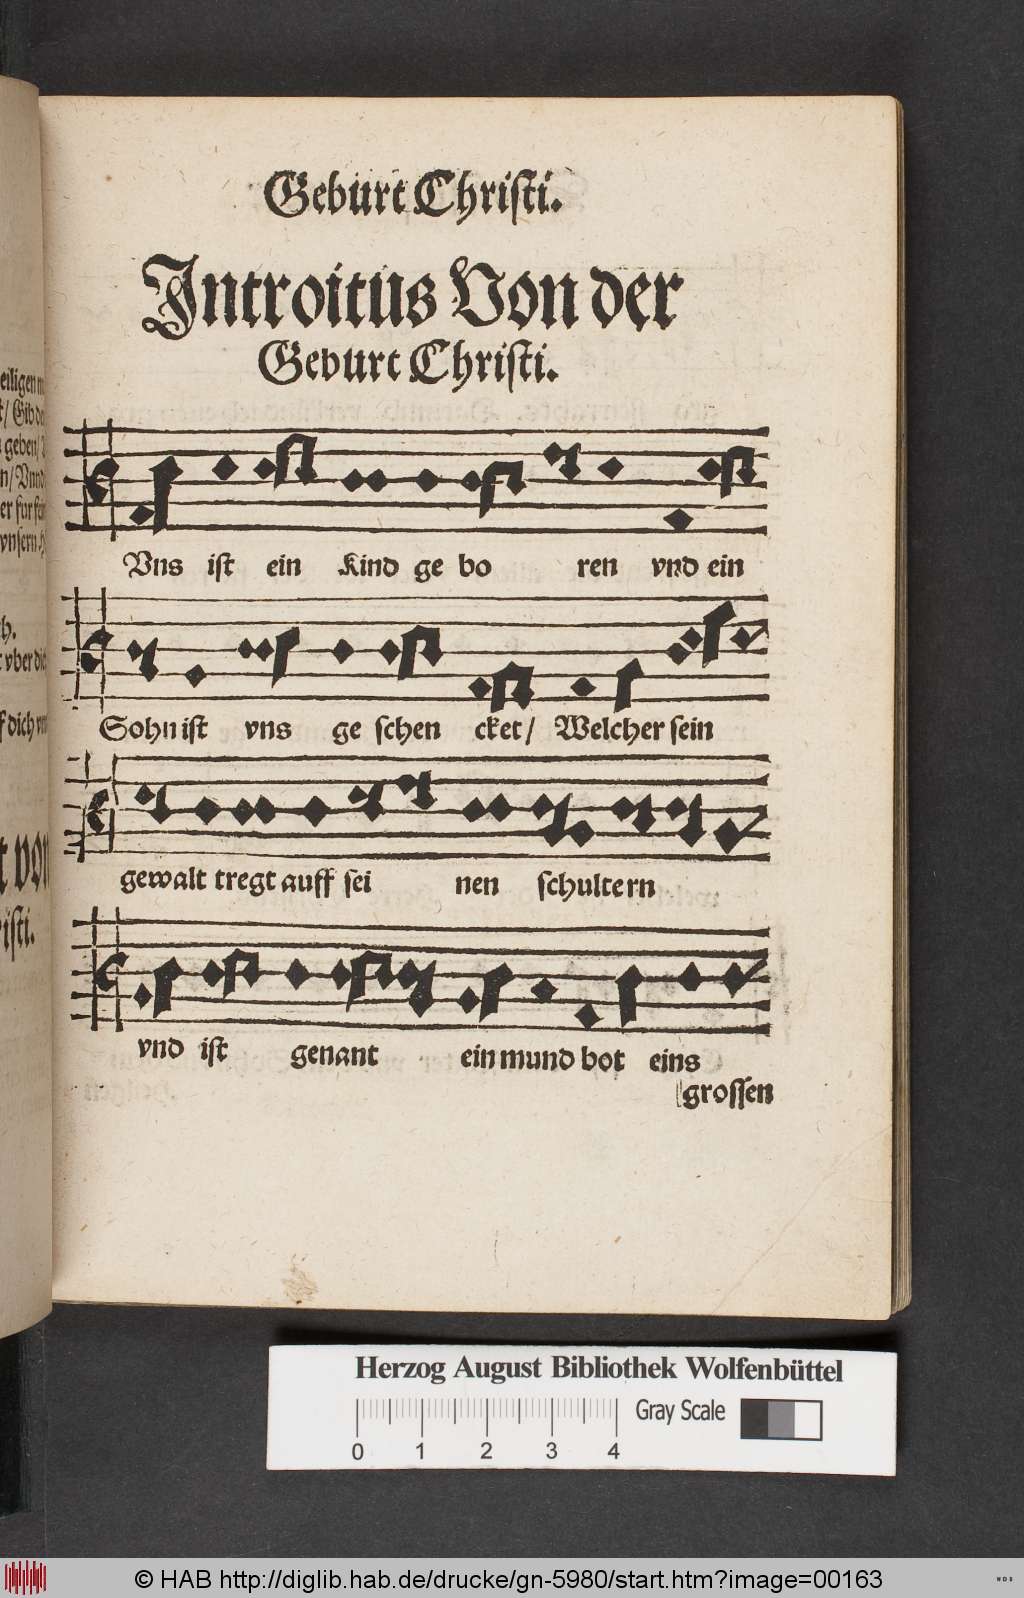 Geburt Christi.
Introitus Von der
Geburt Christi.
Vns ist ein Kind ge bo ren vnd ein
Sohn ist vns ge schen cket/ Welcher sein
gewalt tregt auff sei nen schultern
vnd ist genant ein mund bot eins
grossen
Herzog August Bibliothek Wolfenbüttel
Gray Scale
0 1 2 3 4
© HAB http://diglib.hab.de/drucke/gn-5980/start.htm?image=00163